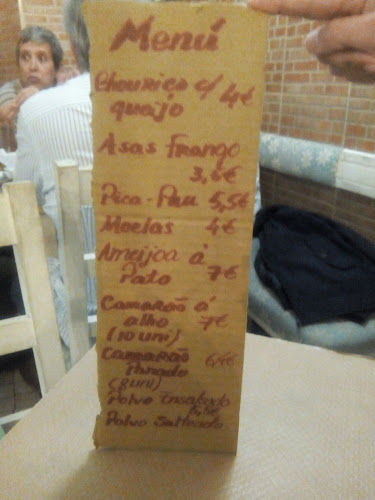 Menú
Chouriço c/ 4€
queijo
Asas Frango
3,6€
Pica-Pau 5,5€
Moelas 4€
Ameijoa á
Pato 7€
Camarão á
alho 7€
(10 uni)
Camarão
Panado
(8 uni)
Polvo
Polvo Salteado